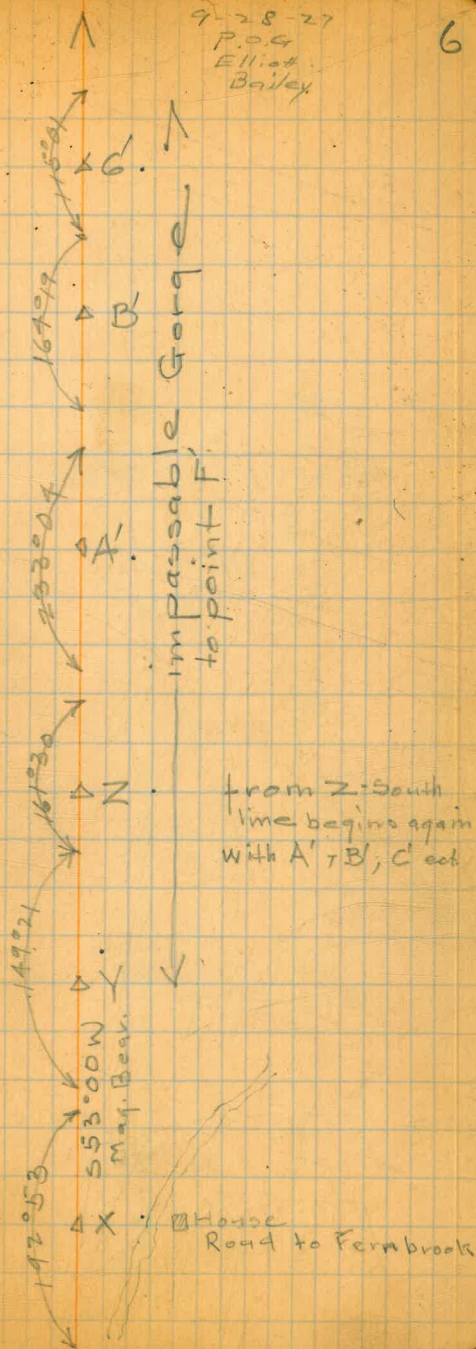 9-28-27
P.O.G
Elliott
Bailey
6
115°01
6'
164°19
B'
Impassable Gorge
to point F'
233°04
A'
161°30
Z
from Z-South
line begins again
with A', B', C' ect
149°21
Y
S53°00W
Mag. Bear.
192°53
X
House
Road to Fernbrook